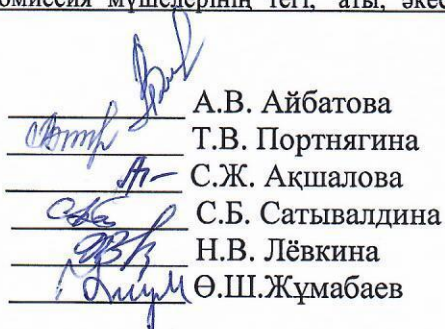 мүшелерінің тегі, аты,
А.В. Айбатова
Т.В. Портнягина
С.Ж. Ақшалова
С.Б. Сатывалдина
Н.В. Лёвкина
Ө.Ш.Жұмабаев